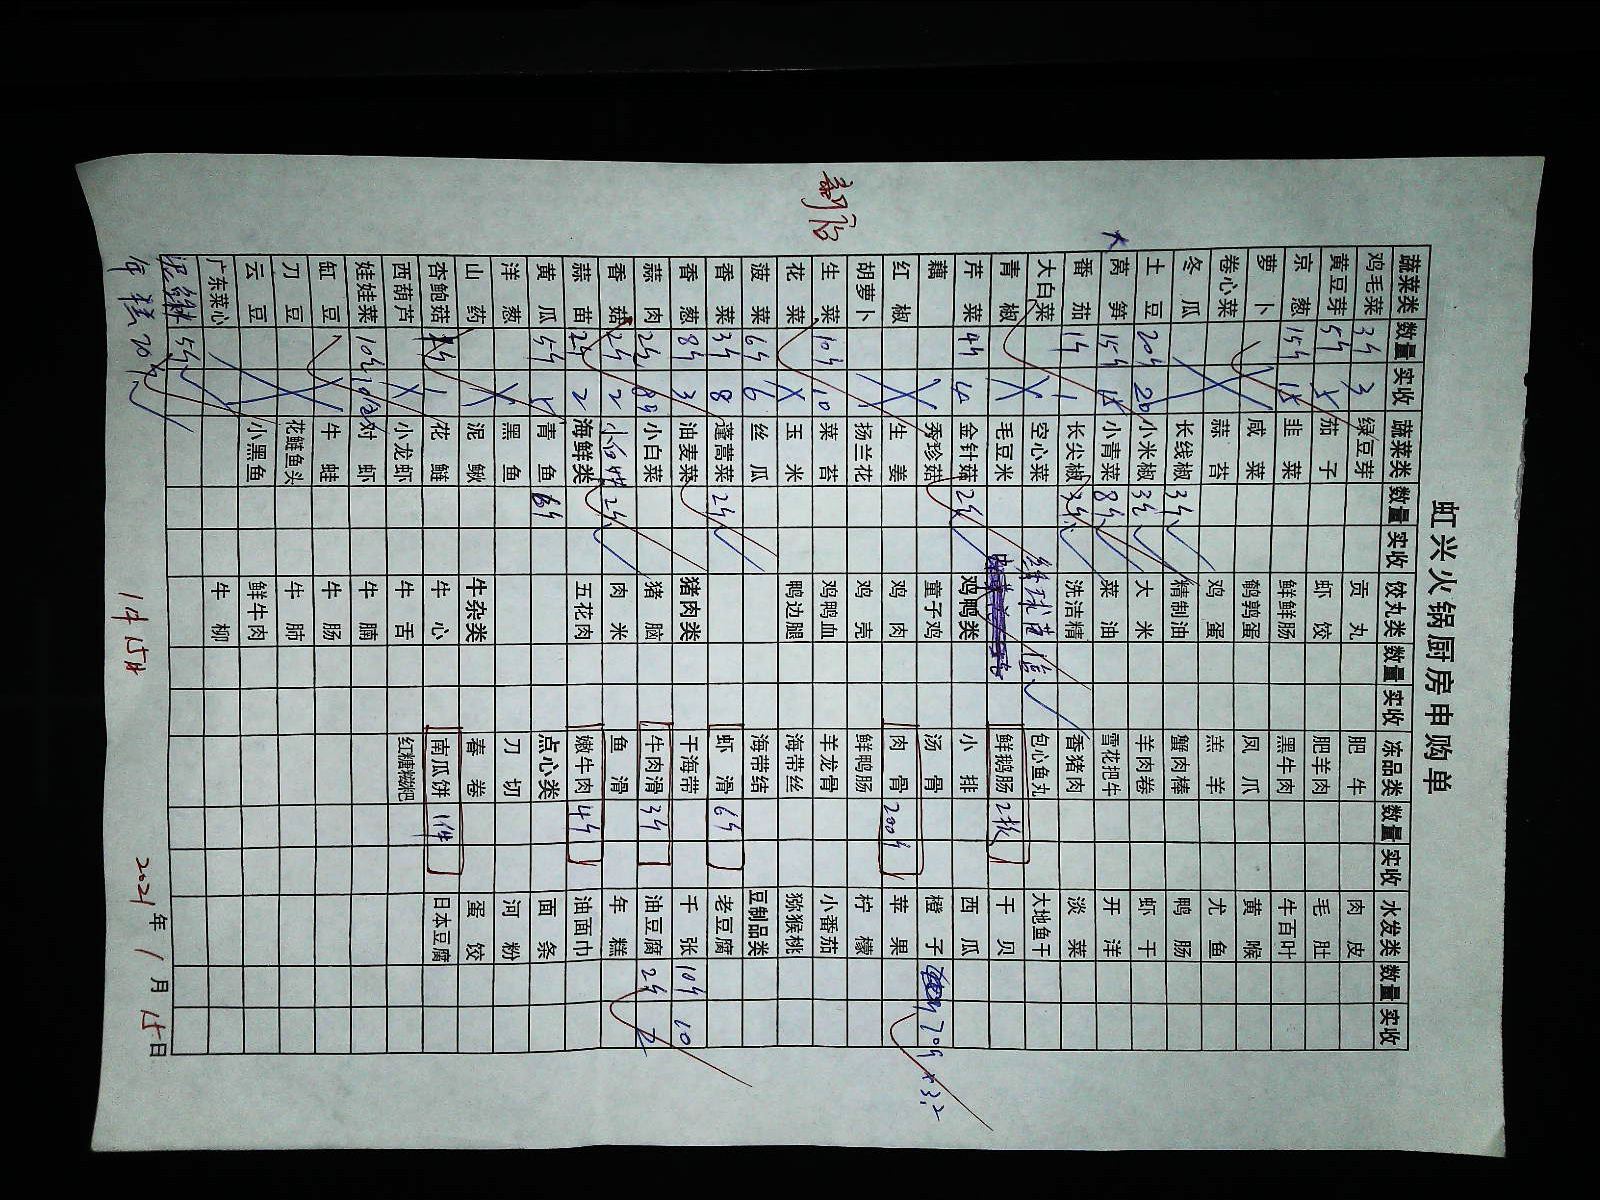 新店
虹兴火锅厨房申购单
蔬菜类 数量 实收 蔬菜类 数量 实收 饺丸类 数量 实收 冻品类 数量 实收 水发类 数量 实收
鸡毛菜 3斤 3 绿豆芽 贡丸 肥牛 肉皮
黄豆芽 5斤 5 茄子 虾饺 肥羊肉 毛肚
京葱 15斤 15 韭菜 鲜鲜肠 黑牛肉 牛百叶
萝卜 咸菜 鹌鹑蛋 凤爪 黄喉
卷心菜 蒜苔 鸡蛋 羔羊 尤鱼
冬瓜 长线椒 3斤 精制油 蟹肉棒 鸭肠
土豆 20斤 20 小米椒 3斤 大米 羊肉卷 虾干
莴笋 15斤 15 小青菜 8斤 菜油 雪花把牛 开洋
番茄 1斤 1 长尖椒 3斤 洗洁精 香猪肉 淡菜
大白菜 空心菜 包心鱼丸 大地鱼干
青椒 毛豆米 鲜鹅肠 2板 干贝
芹菜 4斤 4 金针菇 2斤 鸡鸭类 小排 西瓜
藕 秀珍菇 童子鸡 汤骨 橙子 70斤×3.2
红椒 生姜 鸡肉 肉骨 200斤 苹果
胡萝卜 扬兰花 鸡壳 鲜鸭肠 柠檬
生菜 10斤 10 菜苔 鸡鸭血 羊龙骨 小番茄
花菜 玉米 鸭边腿 海带丝 猕猴桃
菠菜 6斤 6 丝瓜 海带结 豆制品类
香菜 3斤 8 蓬蒿菜 2斤 虾滑 6斤 老豆腐
香葱 8斤 3 油麦菜 猪肉类 干海带 千张 10斤 10
蒜肉 2斤 小白菜 猪脑 牛肉滑 3斤 油豆腐 2斤 2
香菇 2斤 2 2斤 肉米 鱼滑 年糕
蒜苗 2斤 2 海鲜类 五花肉 嫩牛肉 4斤 油面巾
黄瓜 5斤 青鱼 6斤 点心类 面条
洋葱 黑鱼 刀切 河粉
山药 泥鳅 牛杂类 春卷 蛋饺
杏鲍菇 1 花鲢 牛心 南瓜饼 1件 日本豆腐
西葫芦 小龙虾 牛舌 红糖糍粑
娃娃菜 10斤 对虾 牛腩
缸豆 牛蛙 牛肠
刀豆 花鲢鱼头 牛肺
云豆 小黑鱼 鲜牛肉
广东菜心 牛柳
5斤
年糕20斤 1件15斤 2021年1月15日